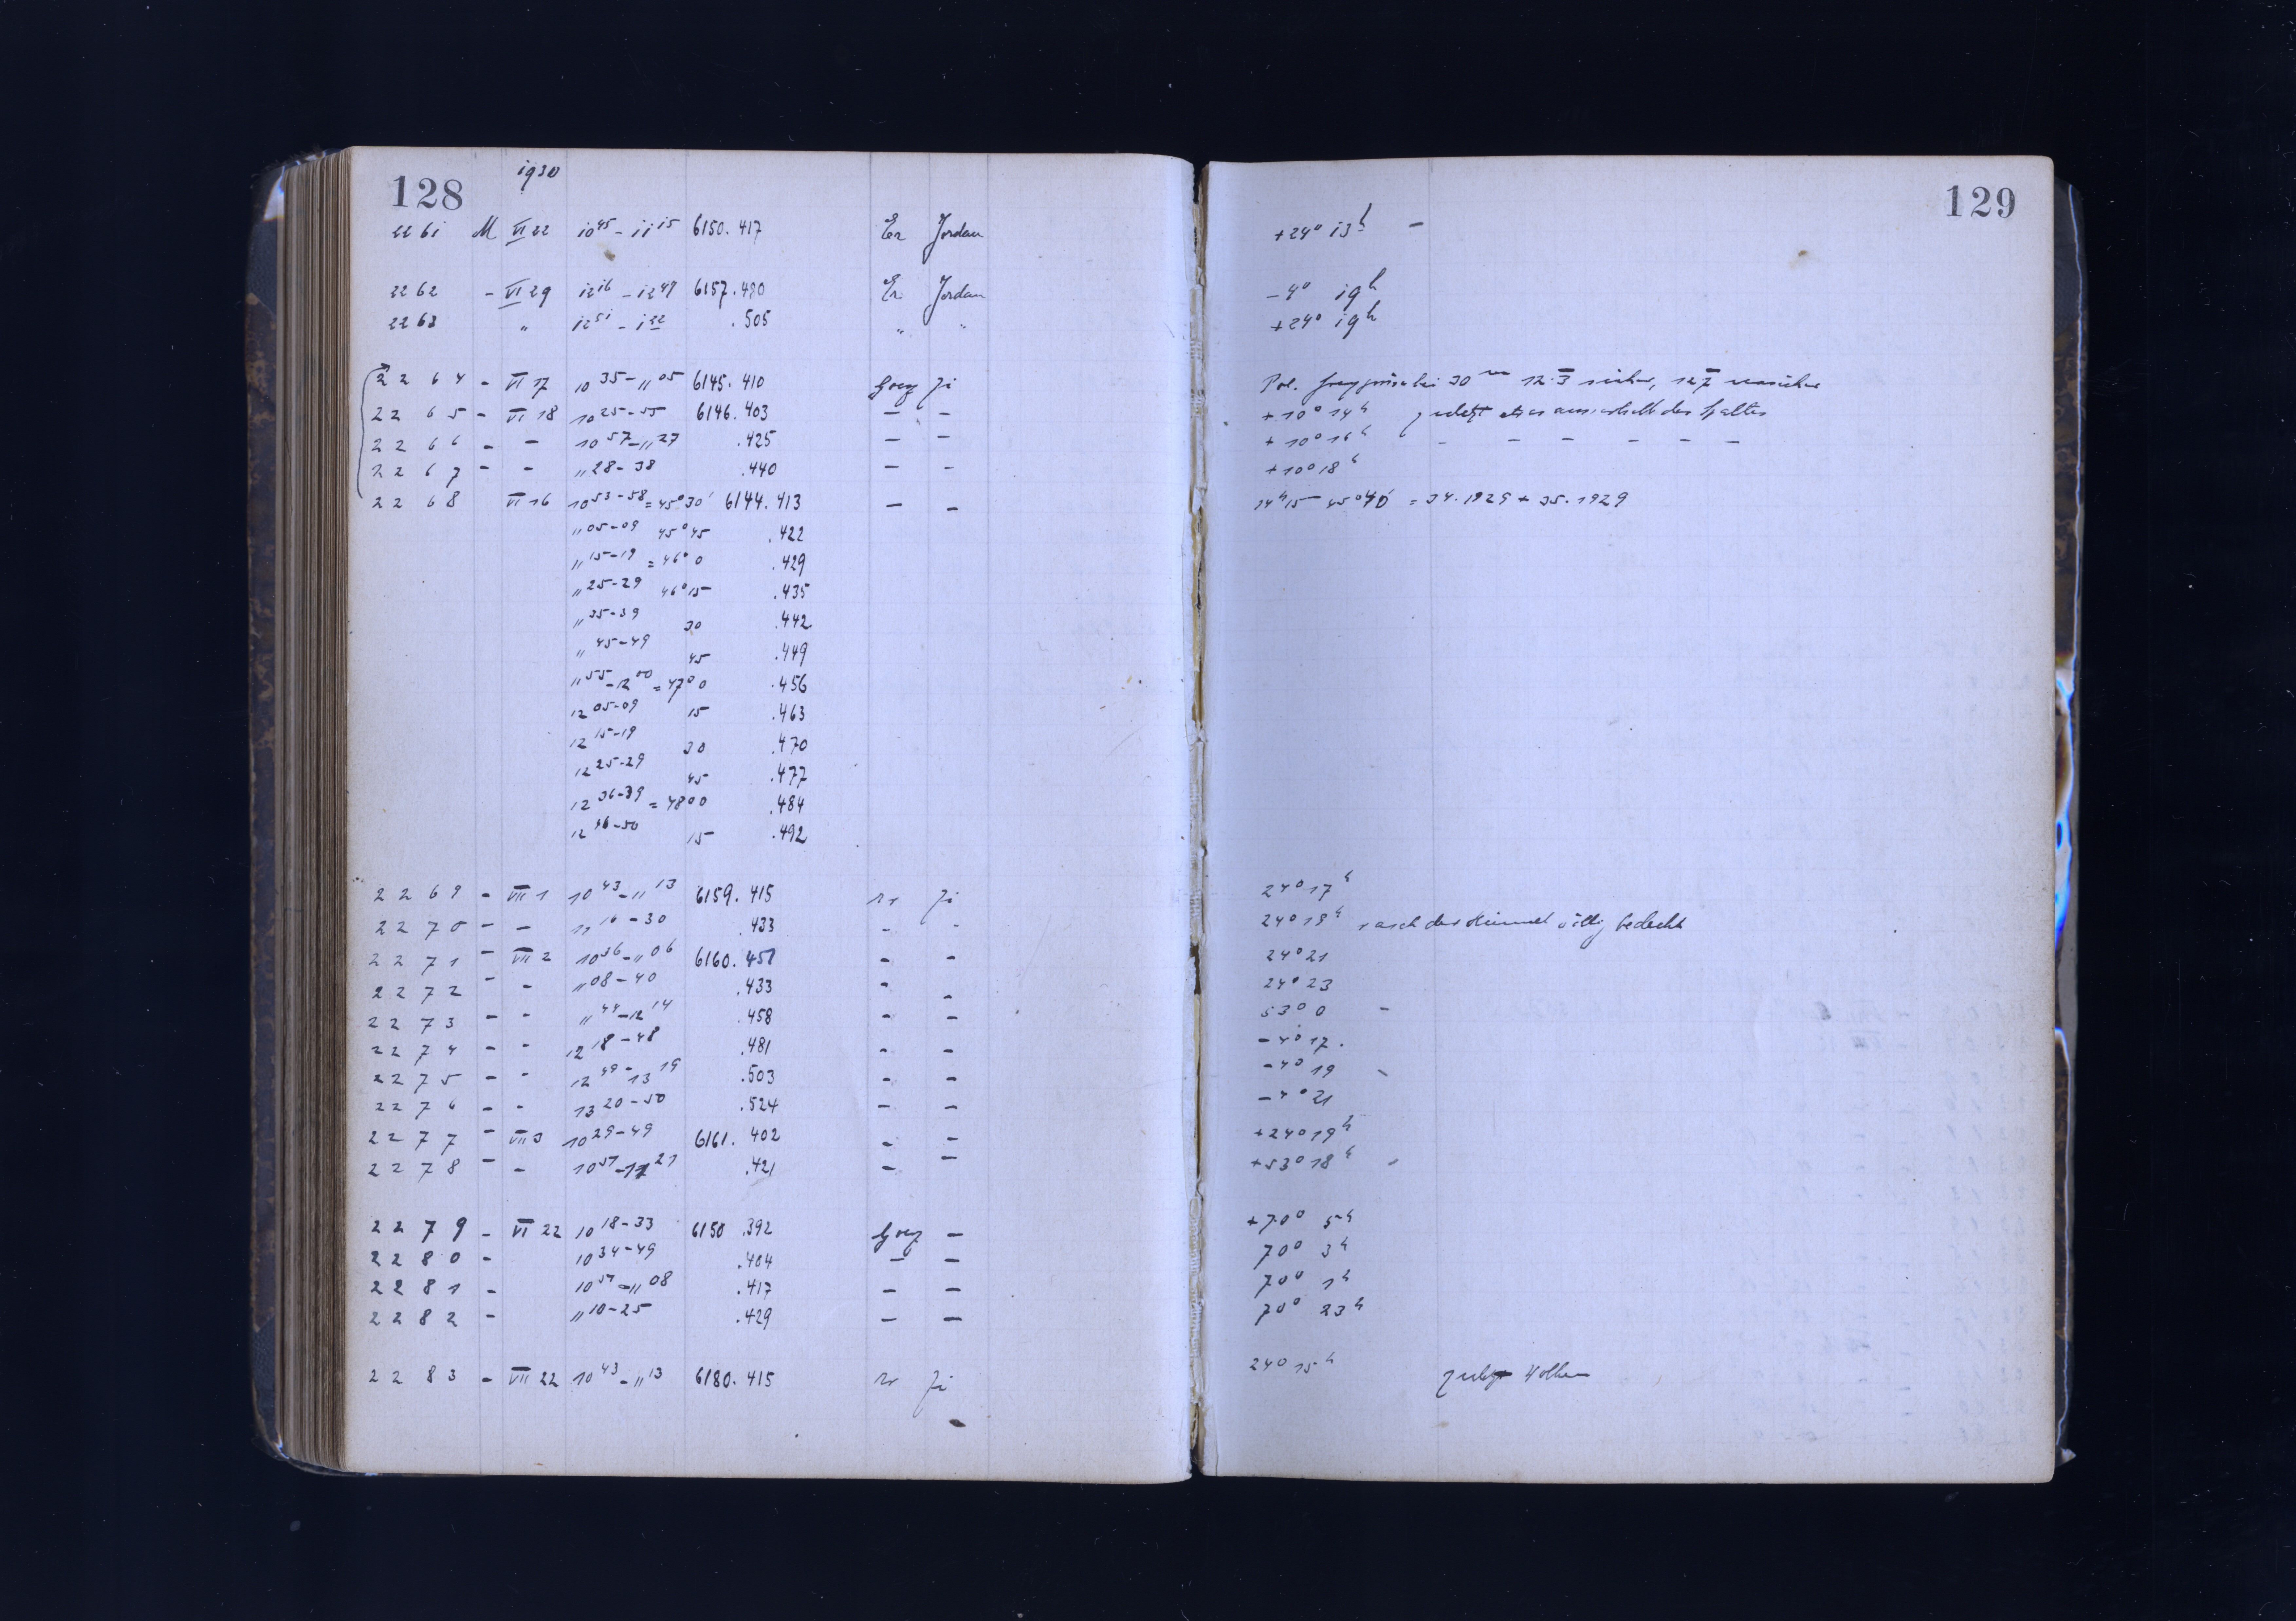 128 1930
2261 M VI 22 10 45 - 11 15 6150.417 Er Jordan
2262 - VI 29 12 16 - 12 49 6157.490 Er Jordan
2263 " 12 51 - 1 22 .505 " "
2264 - VI 17 10 35 - 11 05 6145.410 Goey Ji
2265 - VI 18 10 25-55 6146.403 - -
2266 - - 10 57 - 11 27 .425 - -
2267 - - 11 28-38 .440 - -
2268 VI 16 10 53-58 = 45° 30' 6144.413 - -
11 05-09 45° 45 .422
11 15-19 = 46° 0 .429
11 25-29 46° 15 .435
11 35-39 30 .442
11 45-49 45 .449
11 55 - 12 00 = 47° 0 .456
12 05-09 15 .463
12 15-19 30 .470
12 25-29 45 .477
12 36-39 = 48° 0 .484
12 46-50 15 .492
2269 - VII 1 10 43 - 11 13 6159.415 rr Ji
2270 - - 11 16-30 .433 - -
2271 - VII 2 10 36 - 11 06 6160. - -
2272 - - 11 08-40 .433 - -
2273 - - 11 44 - 12 14 .458 - -
2274 - - 12 18-48 .481 - -
2275 - - 12 49 - 13 19 .503 - -
2276 - - 13 20-50 .524 - -
2277 - VII 3 10 29-49 6161.402 - -
2278 - - 10 51 - 11 21 .421 - -
2279 - VI 22 10 18-33 6150.392 Goey -
2280 - 10 34-49 .404 - -
2281 - 10 51 - 11 08 .417 - -
2282 - 11 10-25 .429 - -
2283 - VII 22 10 43 - 11 13 6180.415 rr Ji
129
+24° 13h -
-4° 19h
+24° 19h
Pol. bei 30 m 12.
+10° 14h zuletzt etwas ausserhalb des Spaltes
+10° 16h - - - - - -
+10° 18h
14h 15 45° 40' = 34.1929 + 35.1929
24° 17h
24° 19h rasch der Himmel völlig bedeckt
24° 21
24° 23
53° 0 -
-4° 17.
-4° 19 -
-4° 21
+24° 19h
+53° 18h -
+70° 5h
70° 3h
70° 1h
70° 23h
24° 15h zuletzt Wolken